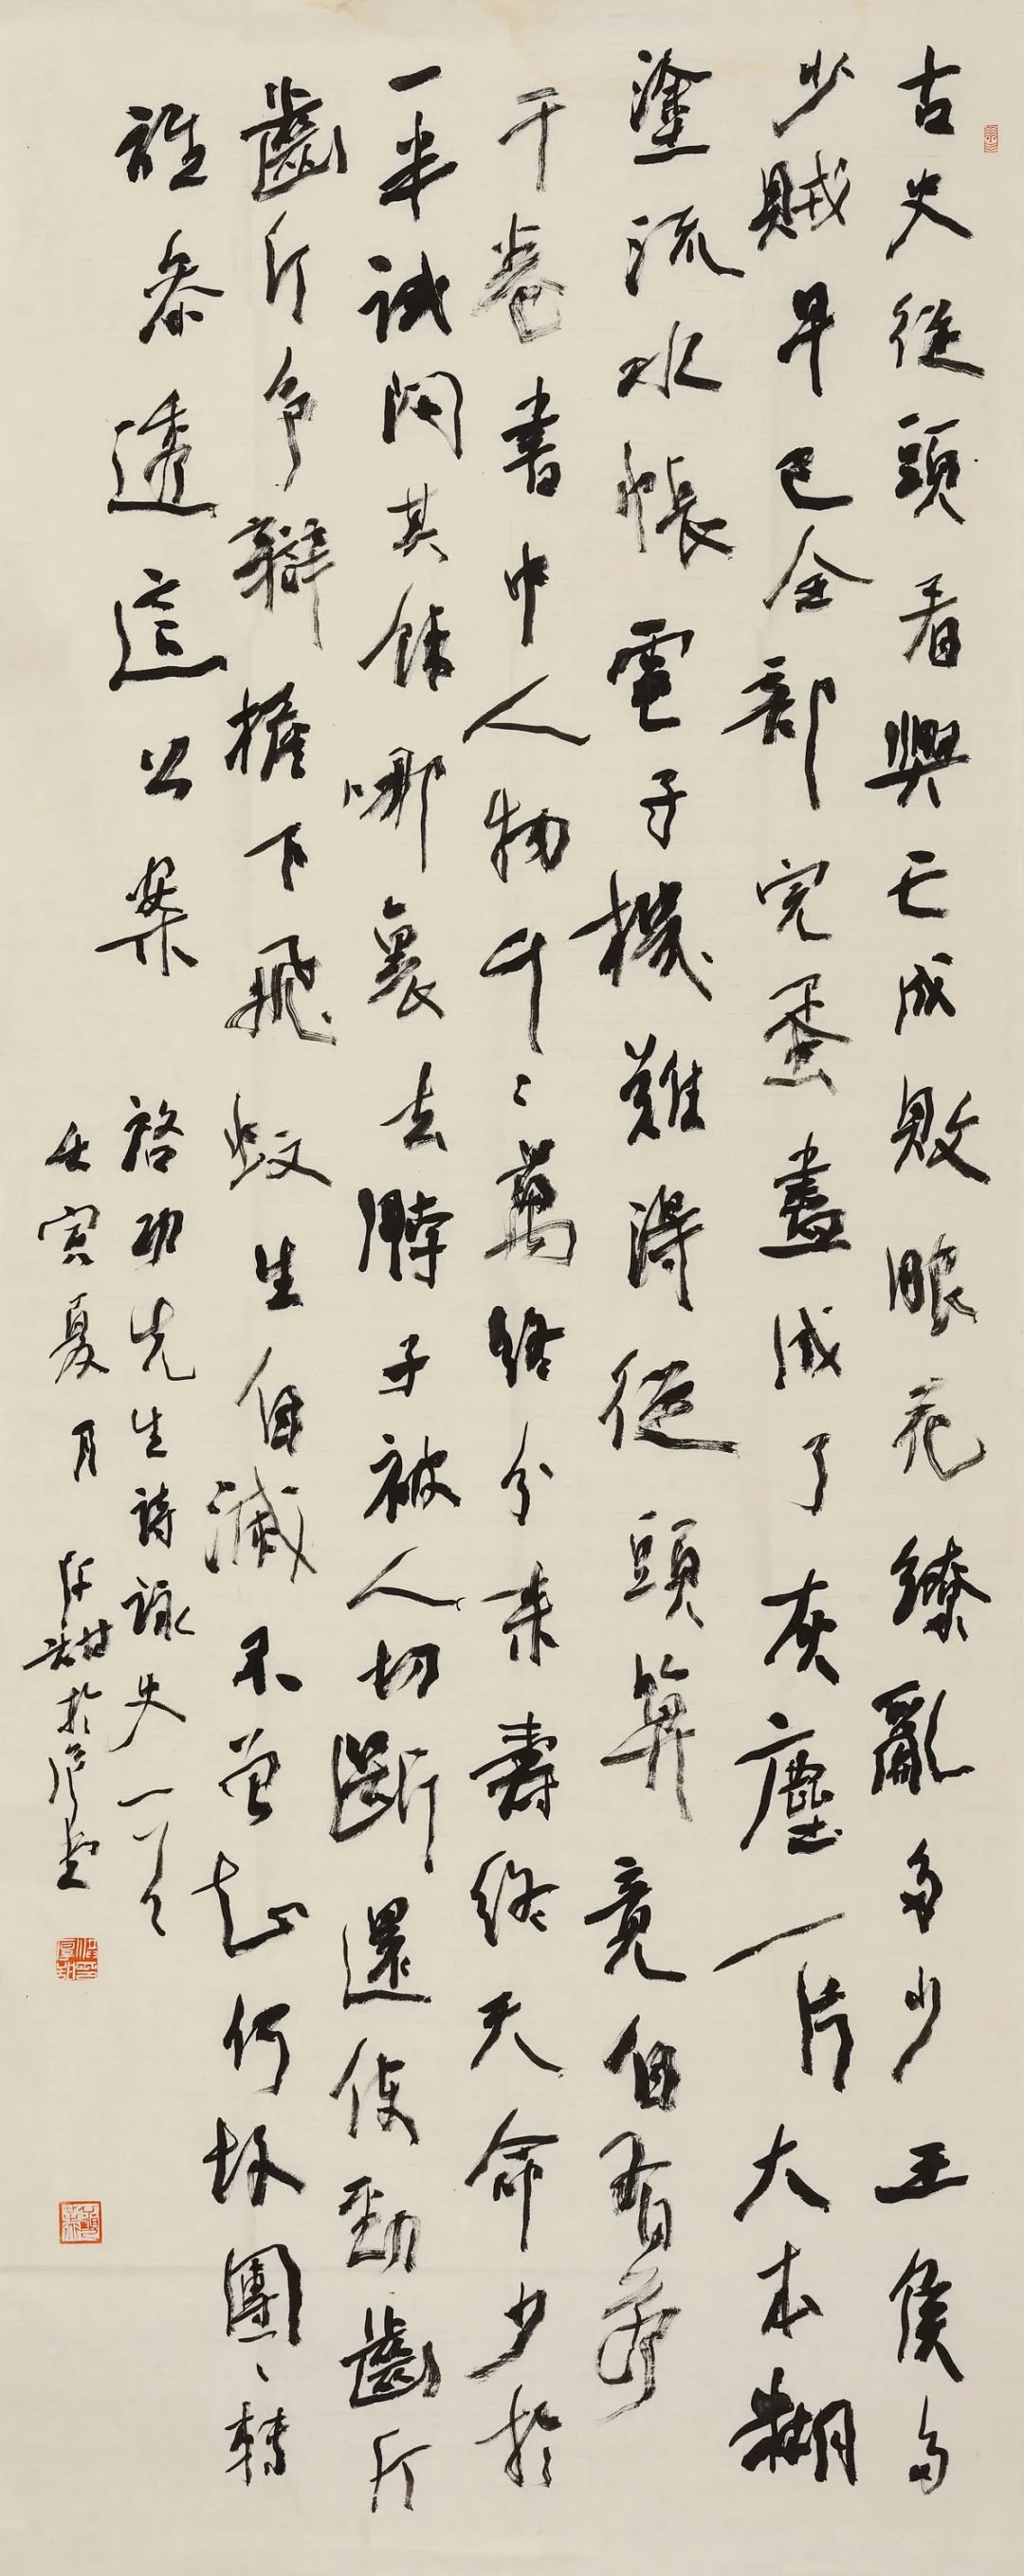 古史從頭看興亡成敗眼花繚亂多少王侯多
少賊早已全部完蛋盡成了灰塵一片大本糊
塗流水帳電子機難得從頭算竟自有若
干卷書中人物千〻萬分來壽終天命少於
一半試問其餘哪裏去脖子被人切斷還使勁齗
齗爭辯檐下飛蚊生自滅不曾知何故團〻轉
誰參透這公案 啓功先生詩詠史一首
壬寅夏月 於堂